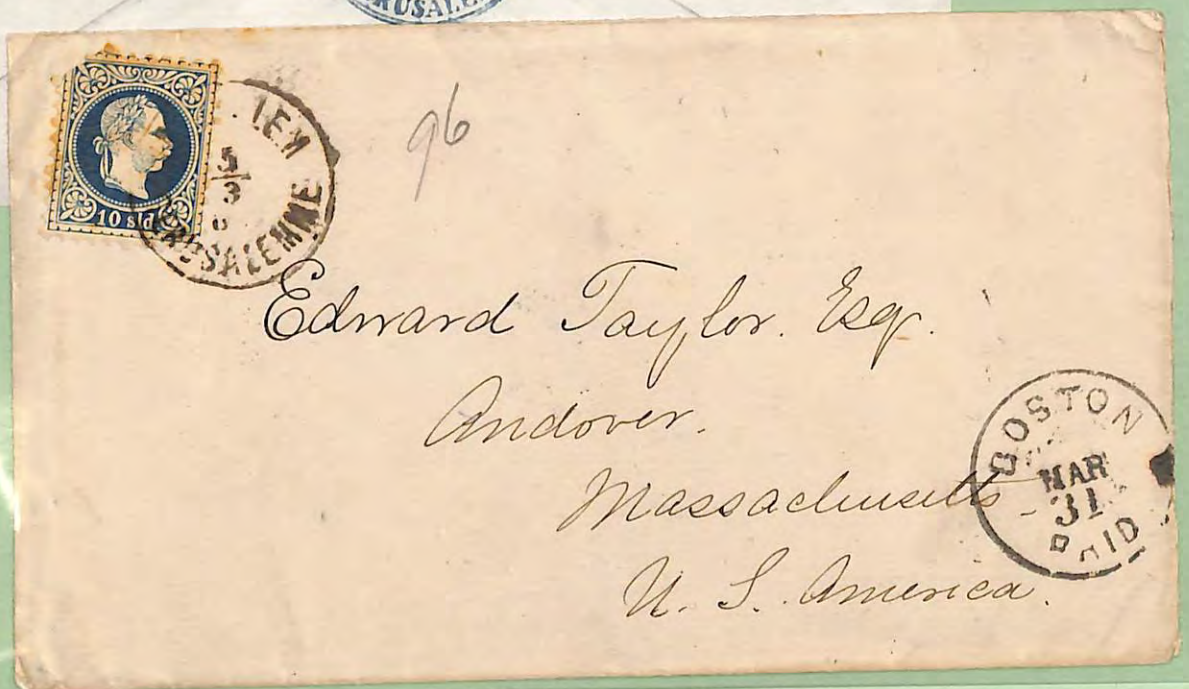 RUSALE
10 sld
LEM
5
3
RUSALEMME
96
Edward Taylor. Esq.
Andover.
Massachusetts
U. S. America.
BOSTON
MAR
31
PAID